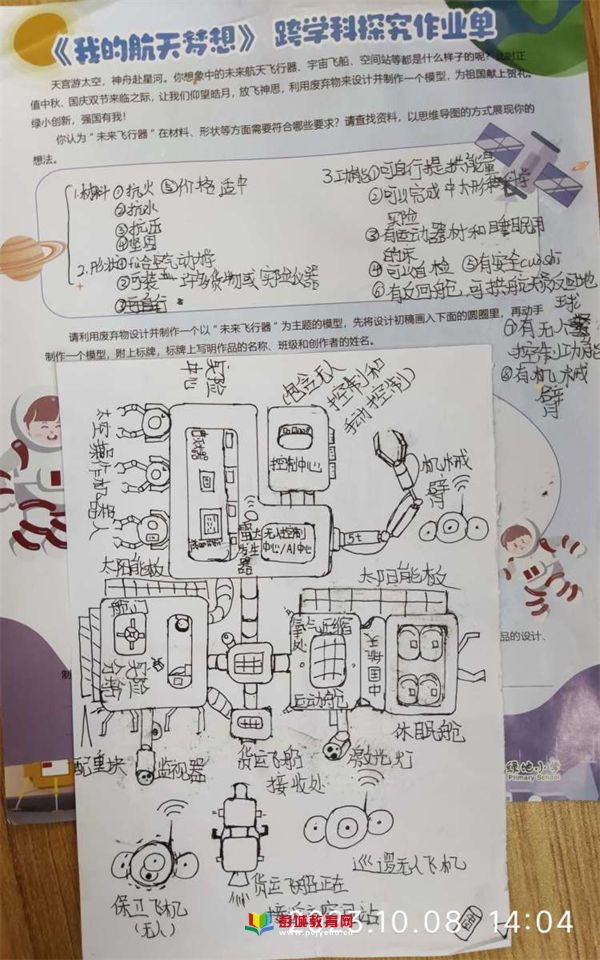 《我的航天梦想》 跨学科探究作业单
天宫游太空，神丹赴星河。你想象中的未来航天飞行器、宇宙飞船、空间站等都是什么样子的呢？
值中秋、国庆双节来临之际，让我们仰望皓月，放飞神思，利用废弃物来设计并制作一个模型，为祖国献上贺礼，
绿小创新，强国有我！
你认为“未来飞行器”在材料、形状等方面需要符合哪些要求？请查找资料，以思维导图的方式展现你的
想法。
1.材料 ①抗火 ⑤价格适中
②抗水
③抗压
④坚固
2.形状 ①符合空气动力学
②可装 实验仪器
3.功能 ①可自行提供能量
②可以完成中大形科学
实险
③有运动器材和睡眠用
的床
④可以自检 ⑤有安全
⑥有反回舱，可供航天员反回地
球
⑦有无人
控制功能
⑧有机械
臂
请利用废弃物设计并制作一个以“未来飞行器”为主题的模型，先将设计初稿画入下面的圆圈里，再动手
制作一个模型，附上标牌，标牌上写明作品的名称、班级和创作者的姓名。
实险
中心
包含无人
控制和
手动控制
太空操作机器人
控制中心
机械
臂
雷达发生器
无人控制
中心/AI中心
太阳能板
太阳能板
舱门
实险
氧气压缩
处
中国航天
运动舱
休眠舱
品的设计、
制
配重块
监视器
货运飞船
接收处
激光灯
绿地小学
Primary School
保卫飞机
(无人)
货运飞船正在
接近空间站
巡逻无人飞机
都城教育网
www.pejyedu.cn
10.08 14:04